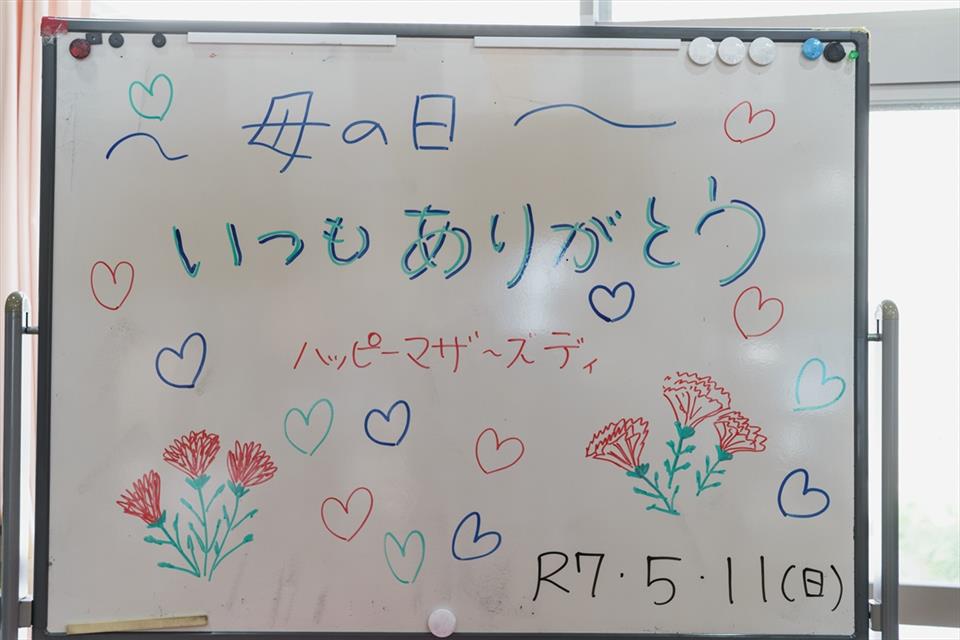 〜母の日〜
いつもありがとう
ハッピーマザーズディ
R7・5・11(日)